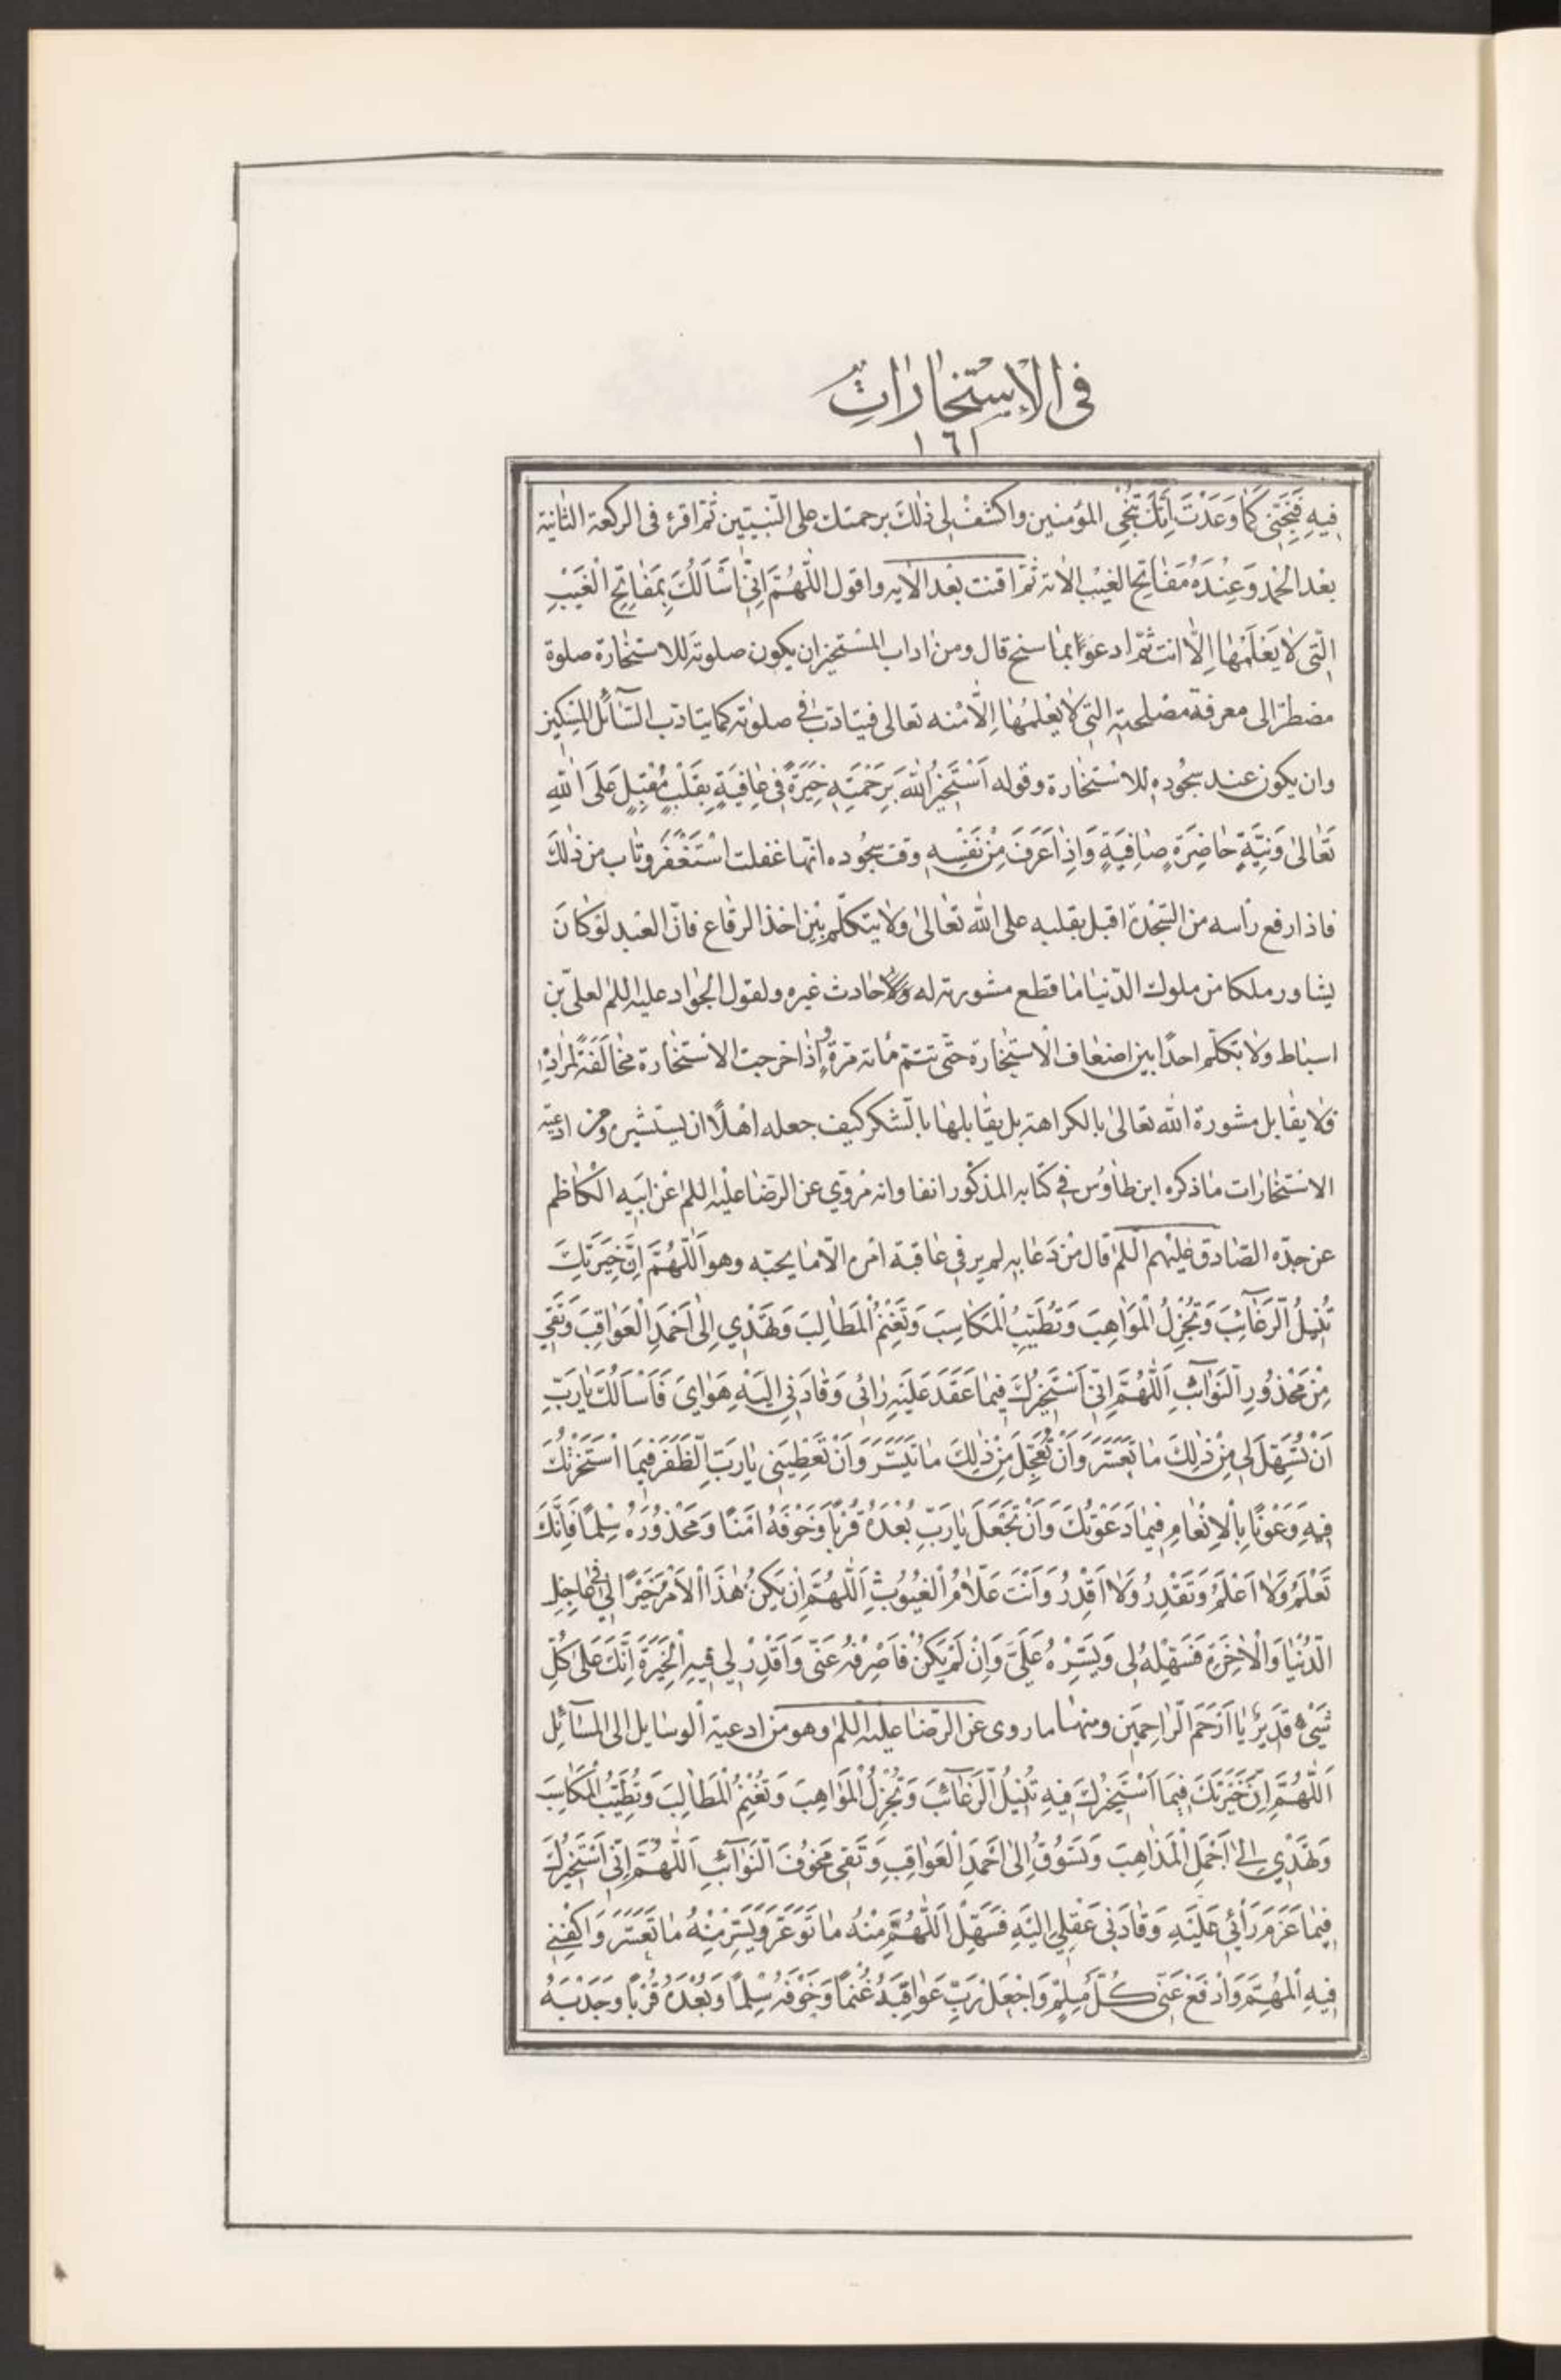 فى الاستخارات
١٦١
فيهِ فَنَجِّنى كَمٰا وَعَدْتَ أَنَّكَ تُنْجِى المؤمنين واكشفْ لى ذٰلكَ برحمتك على النّبيّين ثمّ اقرء فى الركعة الثّانية
بعْد الحْمد وَعِنْدَهُ مَفٰاتِحُ الغيْب الاٰية ثمّ اقنت بعْد الاٰيه واقول اللّٰهُمَّ اِنّى اَسْأَلُكَ بِمَفٰاتِحِ الْغَيْبِ
الّتى لٰا يَعْلَمُهٰا اِلّٰا انت ثمّ ادعوُ بمٰا سنح قال ومن اٰداب المسْتخيران يكون صلوته للاستخٰارة صلوة
مضطرّ الى معرفة مصْلحته التى لٰا يعْلمُهٰا اِلّٰا منه تعالى فيتادّب فى صلوته كما يتادّب السّآئل المسكين
وان يكون عند سجُوده للاسْتخٰارة وقوله اَسْتَخيرُ اللّٰهَ بِرَحْمَتِهِ خِيَرَةً فى عٰافِيَةٍ بِقَلْبٍ مُقْبِلٍ عَلَى اللّٰهِ
تَعٰالىٰ وَنِيَّةٍ حٰاضِرَةٍ صٰافِيَةٍ وَاِذٰا عَرَفَ مِنْ نَفْسِهِ وقت سجُوده انّها غفلت اسْتَغْفَرَ وتٰاب من ذٰلكَ
فاذا رفع رأسه من السّجْدة اقبل بقلبه على اللّٰه تعٰالىٰ وَلٰا يتكلّم بيْن اخذ الرقاع فانّ العبْد لوْ كٰانَ
يشاور ملكا من ملوك الدّنيٰا مٰا قطع مشورته له وَلٰا حٰادث غيره ولقول الجوٰاد عليه السلم لعلىّ بْن
اسبٰاط وَلٰا تكلّم احدًا بين اضعٰاف الْاستخٰارة حتّى تتمّ مٰائة مرّة واِذٰا خرجت الاسْتخٰارة مخٰالفَةً لمرٰادِهِ
فلٰا يقٰابل مشورة اللّٰه تعالىٰ بالكراهة بل يقٰابلهٰا بالشكر كيف جعله اهْلًا ان يستشير ومن ادعية
الاسْتخٰارات مٰا ذكره ابن طاوُس فى كتٰابه المذكور انفا وانه مرْوىّ عن الرضٰا عليْه السلم عن ابيه الكٰاظم
عن جدّه الصّادق عليْهم السلم قال مْن دَعٰا به لم ير فى عٰاقبة امْره الّا مٰا يحبّه وهو اَللّٰهُمَّ اِنَّ خِيَرَتَكَ
تُنيلُ الرَّغٰآئِبَ وَتُجْزِلُ الْمَوٰاهِبَ وَتُطَيِّبُ الْمَكٰاسِبَ وَتُغْنِمُ الْمَطٰالِبَ وَتَهْدي اِلىٰ اَحْمَدِ الْعَوٰاقِبِ وَتَقى
مِنْ مَحْذُورِ النَّوٰآئِبِ اَللّٰهُمَّ اِنّى اَسْتَخيرُكَ فيمٰا عَقَدَ عَلَيْهِ رٰائى وَقٰادَنى اِلَيْهِ هَوٰاىَ فَاَسْاَلُكَ يٰا رَبِّ
اَنْ تُسَهِّلَ لى مِنْ ذٰلِكَ مٰا تَعَسَّرَ وَاَنْ تُعَجِّلَ مِنْ ذٰلِكَ مٰا تَيَسَّرَ وَاَنْ تُعْطِيَنى يٰا رَبِّ الظَّفَرَ فيمَا اسْتَخَرْتُكَ
فيهِ وَعَوْنًا بِالْاِنْعٰامِ فيمٰا دَعَوْتُكَ وَاَنْ تَجْعَلَ يٰا رَبِّ بُعْدَهُ قُرْبًا وَخَوْفَهُ اَمْنًا وَمَحْذُورَهُ سِلْمًا فَاِنَّكَ
تَعْلَمُ وَلٰا اَعْلَمُ وَتَقْدِرُ وَلٰا اَقْدِرُ وَاَنْتَ عَلّٰامُ الْغُيُوبِ اَللّٰهُمَّ اِنْ يَكُنْ هٰذَا الْاَمْرُ خَيْرًا لى فى عٰاجِلِ
الدُّنْيٰا وَالْاٰخِرَةِ فَسَهِّلْهُ لى وَيَسِّرْهُ عَلَىَّ وَاِنْ لَمْ يَكُنْ فَاصْرِفْهُ عَنّى وَاَقْدِرْ لى فيهِ الْخِيَرَةَ اِنَّكَ عَلىٰ كُلِّ
شَىْءٍ قَديرٌ يٰا اَرْحَمَ الرّٰاحِمينَ ومنهٰا ما روى عن الرّضٰا عليْه السلم وهو من ادعية الْوسٰايل الى المسٰآئل
اَللّٰهُمَّ اِنَّ خِيَرَتَكَ فيمَا اَسْتَخيرُكَ فيهِ تُنيلُ الرَّغٰآئِبَ وَتُجْزِلُ الْمَوٰاهِبَ وَتُغْنِمُ الْمَطٰالِبَ وَتُطَيِّبُ الْمَكٰاسِبَ
وَتَهْدي اِلىٰ اَجْمَلِ الْمَذٰاهِبِ وَتَسُوقُ اِلىٰ اَحْمَدِ الْعَوٰاقِبِ وَتَقى مَخُوفَ النَّوٰآئِبِ اَللّٰهُمَّ اِنّى اَسْتَخيرُكَ
فيمٰا عَزَمَ رَأْئى عَلَيْهِ وَقٰادَنى عَقْلى اِلَيْهِ فَسَهِّلِ اَللّٰهُمَّ مِنْهُ مٰا تَوَعَّرَ وَيَسِّرْ مِنْهُ مٰا تَعَسَّرَ وَاكْفِنى
فيهِ الْمُهِمَّ وَادْفَعْ عَنّى كُلَّ مُلِمٍّ وَاجْعَلْ رَبِّ عَوٰاقِبَهُ غُنْمًا وَخَوْفَهُ سِلْمًا وَبُعْدَهُ قُرْبًا وَجَدْبَهُ